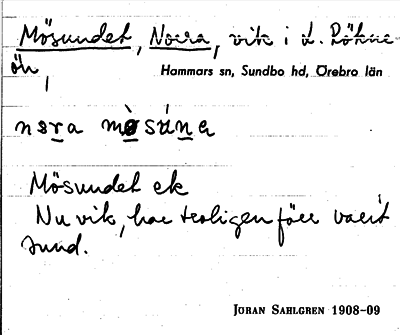 Mösundet, Norra, vik i L. Rökne
ön,
Hammars sn, Sundbo hd, Örebro län
nora mösúna
Mösundet ek
Nu vik, har troligen förr varit
sund.
JÖRAN SAHLGREN 1908-09